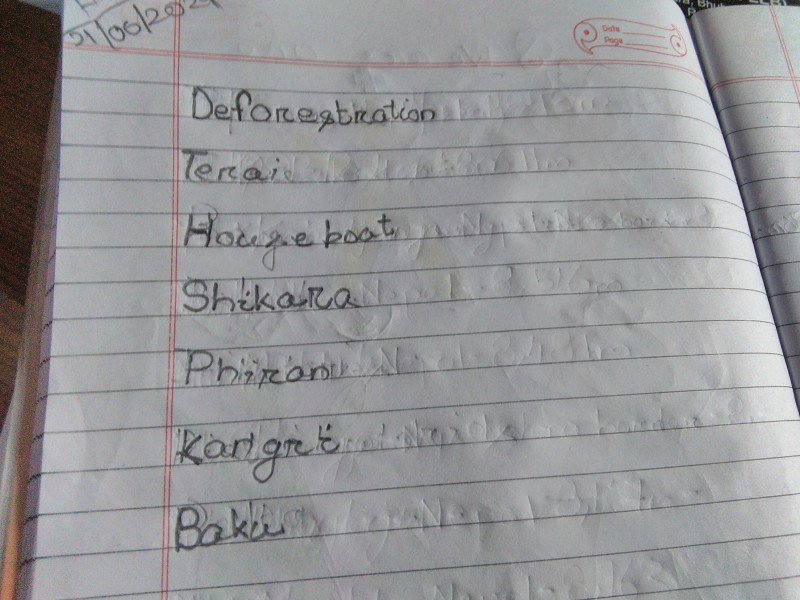 31/06/2021
Date
Page
Deforestration
Terai
House boat
Shikara
Phiran
Kangri
Baku